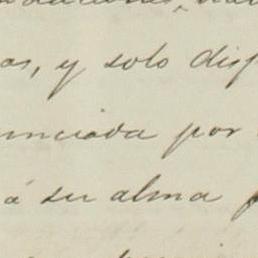 as, y solo disp
unciada por
á su alma p